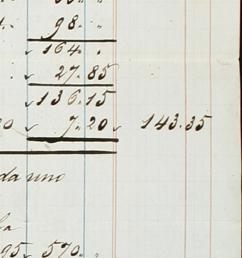 98. "
164. .
27.85
136.15
20 7.20 143.35
da uno
95 570. "